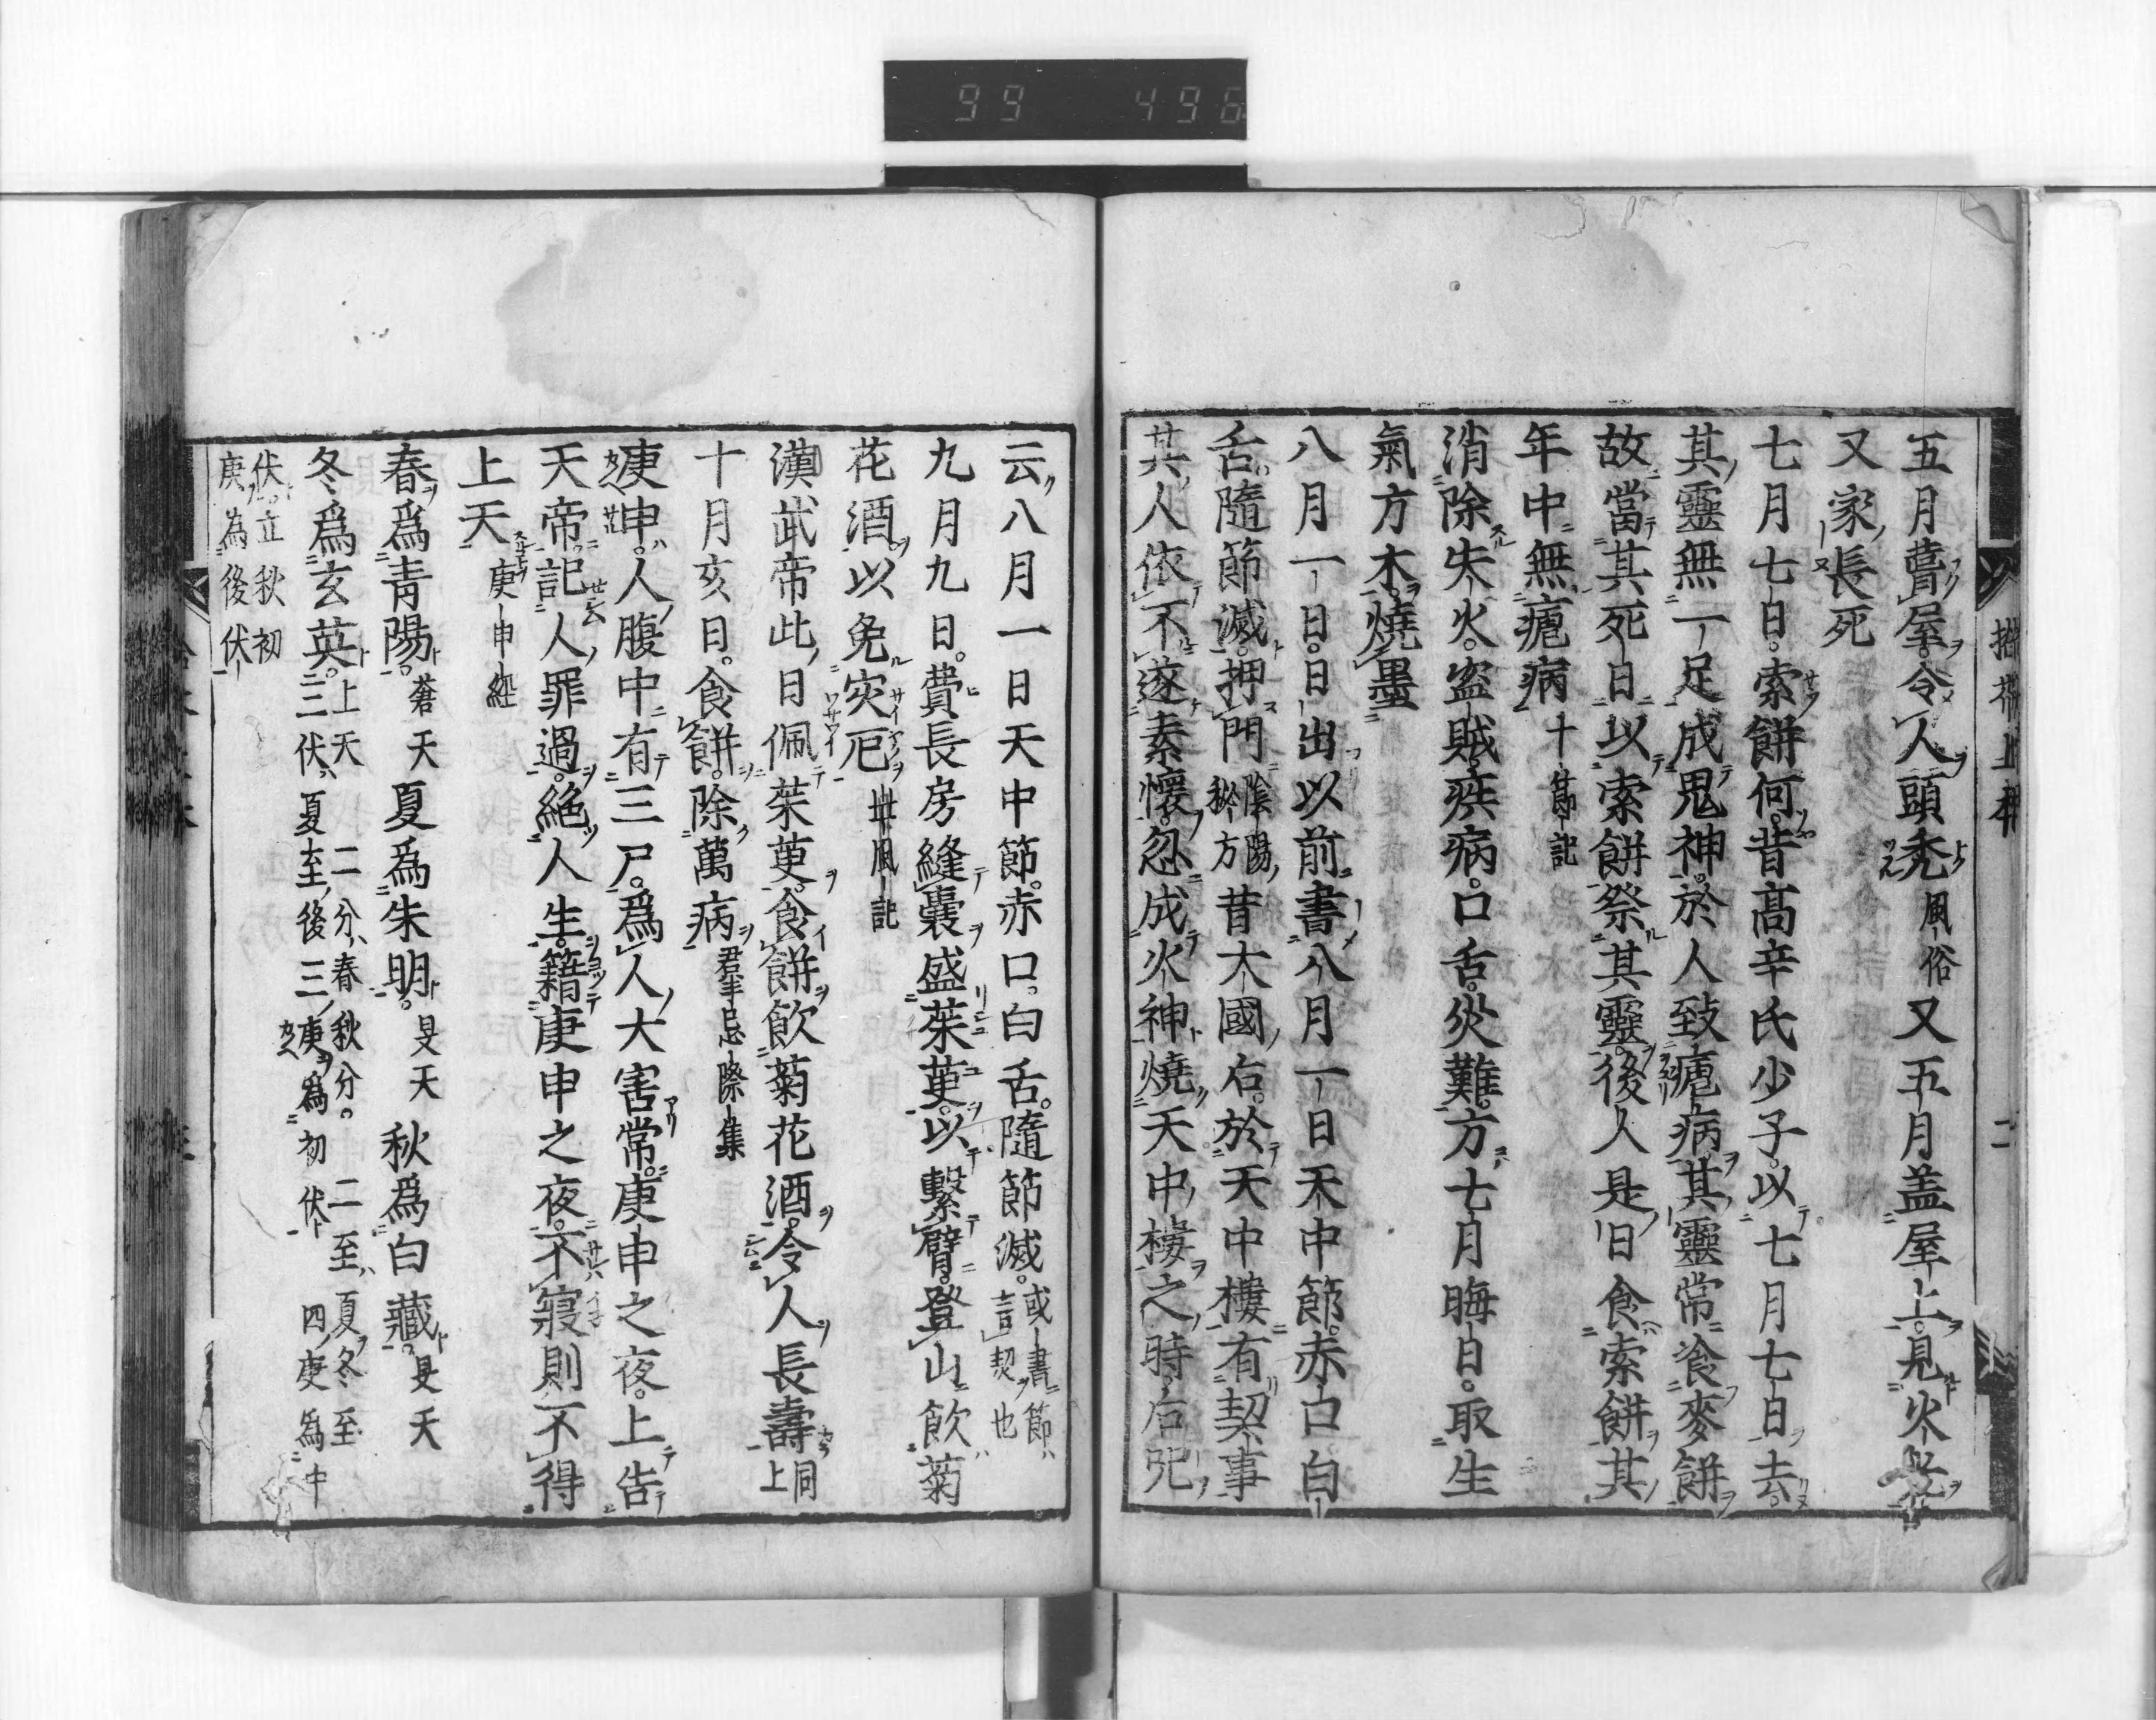 99 496
五月蕢屋。令人頭禿 風俗 又五月盖屋上。見火光
又家長死
七月七日。索餅何。昔髙辛氏少子。以七月七日去。
其靈無一足成鬼神。於人致瘧病。其靈常飡麥餅
故當其死日以索餅祭其靈。後人是日食索餅其
年中無瘧病 十節記
消除失火。盗賊。疾病。口舌。災難。方七月晦日。取生
氣方木。燒墨
八月一日。日出以前書八月一日天中節。赤口白
舌。隨節滅。押門 陰陽秘方 昔大國后。於天中樓有契事
其人依不遂素懐。忽成火神燒天中樓之時后咒
云八月一日天中節。赤口。白舌。隨節滅。 或書節言契也
九月九日。費長房縫囊盛茱萸。以繫臂。登山飲菊
花酒。以免灾厄 世風記
漢武帝此日佩茱萸。食餅飲菊花酒。令人長壽 同上
十月亥日。食餅。除萬病 羣忌際集
庚申。人腹中有三尸。爲人大害常。庚申之夜。上告
天帝記人罪過。絶人生籍。庚申之夜。不寢則不得
上天 庚申經
春爲青陽。 蒼天 夏爲朱明。 旻天 秋爲白藏。 旻天
冬爲玄英。 上天 二分。春秋分。 二至。夏冬至
三伏。夏至後三庚爲初伏 四庚爲中
伏。立秋初
庚為後伏